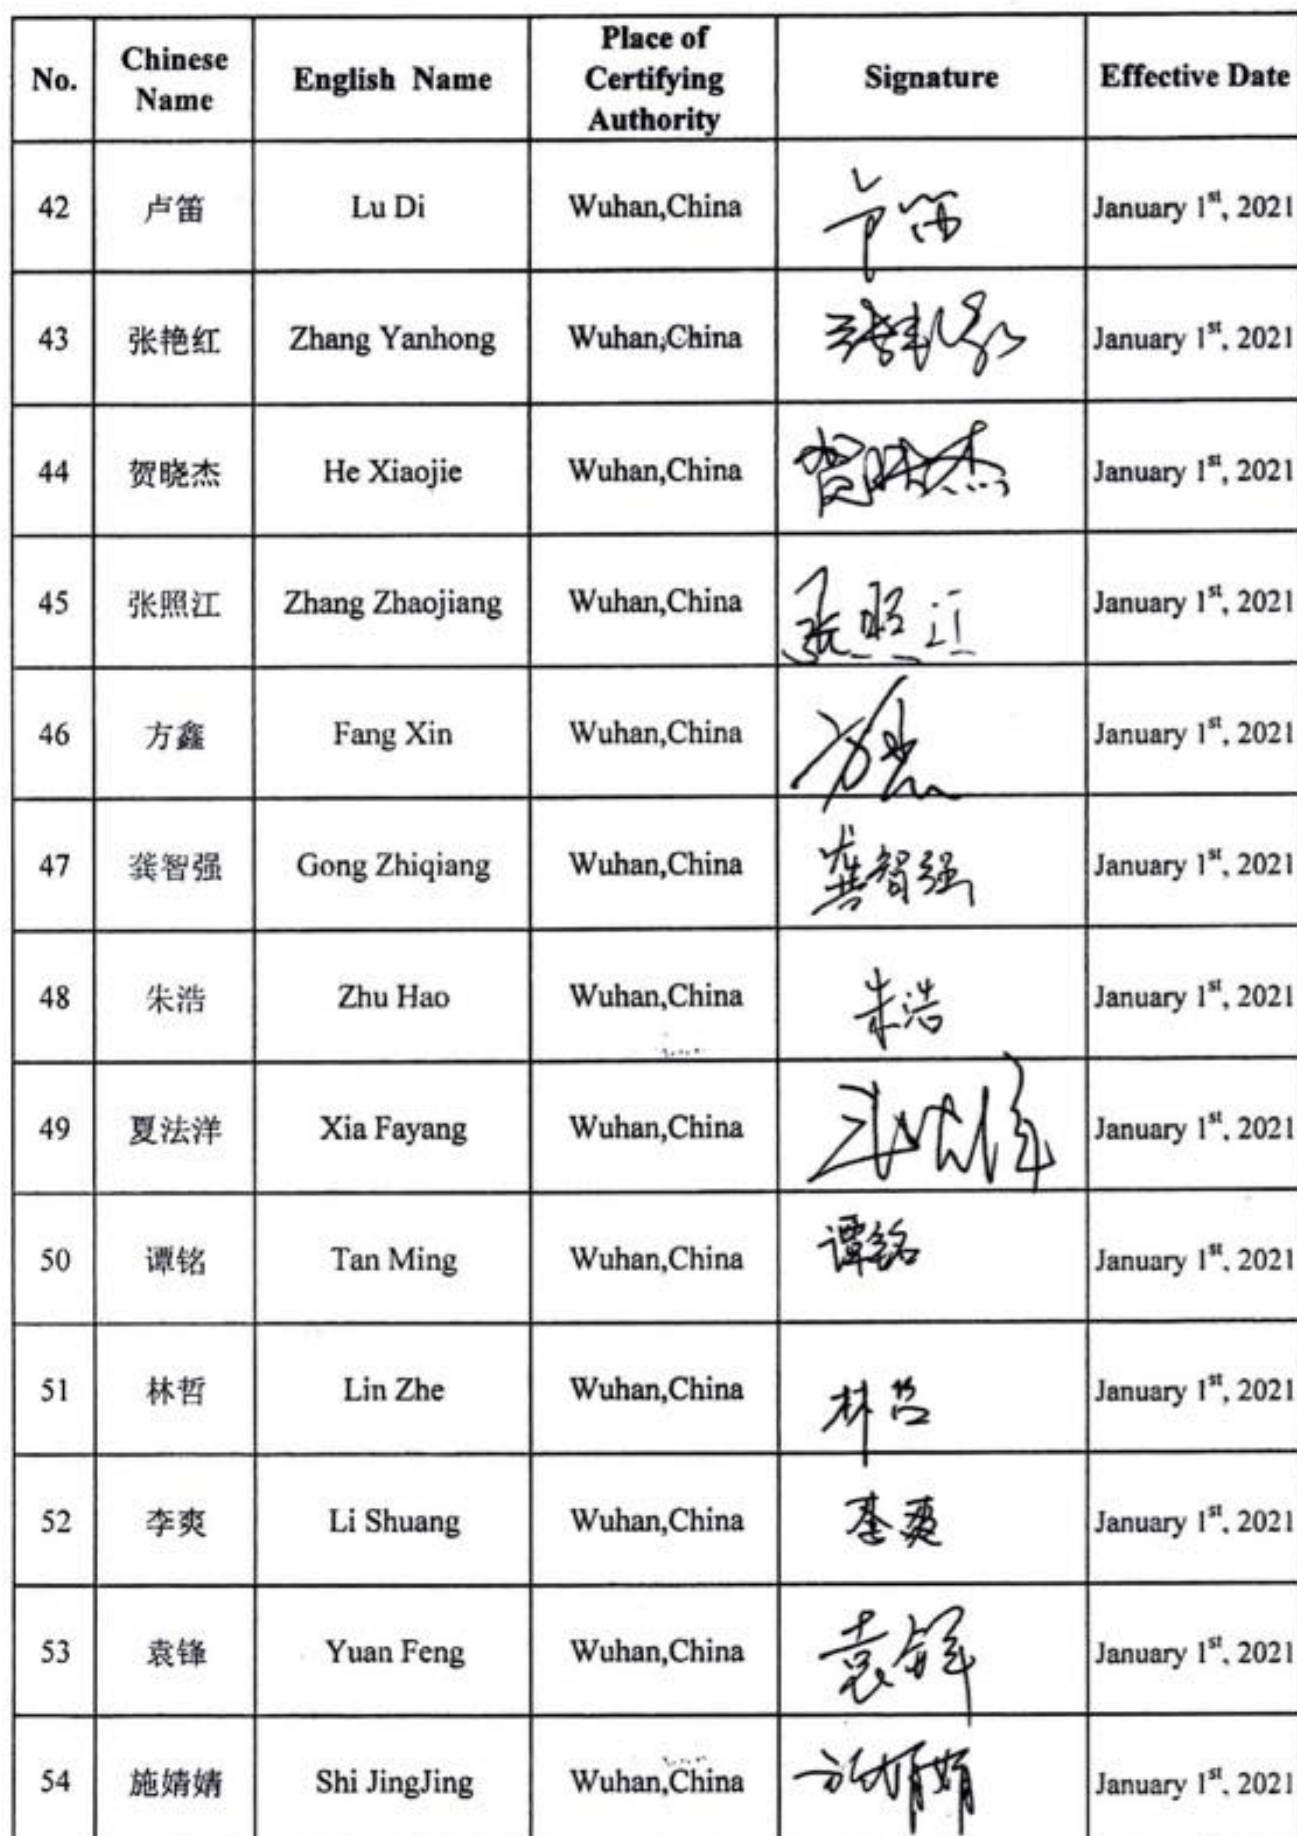 No. Chinese Name English Name Place of Certifying Authority Signature Effective Date
42 卢笛 Lu Di Wuhan,China 卢笛 January 1st, 2021
43 张艳红 Zhang Yanhong Wuhan,China 张艳红 January 1st, 2021
44 贺晓杰 He Xiaojie Wuhan,China 贺晓杰 January 1st, 2021
45 张照江 Zhang Zhaojiang Wuhan,China 张照江 January 1st, 2021
46 方鑫 Fang Xin Wuhan,China 方鑫 January 1st, 2021
47 龚智强 Gong Zhiqiang Wuhan,China 龚智强 January 1st, 2021
48 朱浩 Zhu Hao Wuhan,China 朱浩 January 1st, 2021
49 夏法洋 Xia Fayang Wuhan,China January 1st, 2021
50 谭铭 Tan Ming Wuhan,China 谭铭 January 1st, 2021
51 林哲 Lin Zhe Wuhan,China 林哲 January 1st, 2021
52 李爽 Li Shuang Wuhan,China 李爽 January 1st, 2021
53 袁锋 Yuan Feng Wuhan,China 袁锋 January 1st, 2021
54 施婧婧 Shi JingJing Wuhan,China 施婧婧 January 1st, 2021